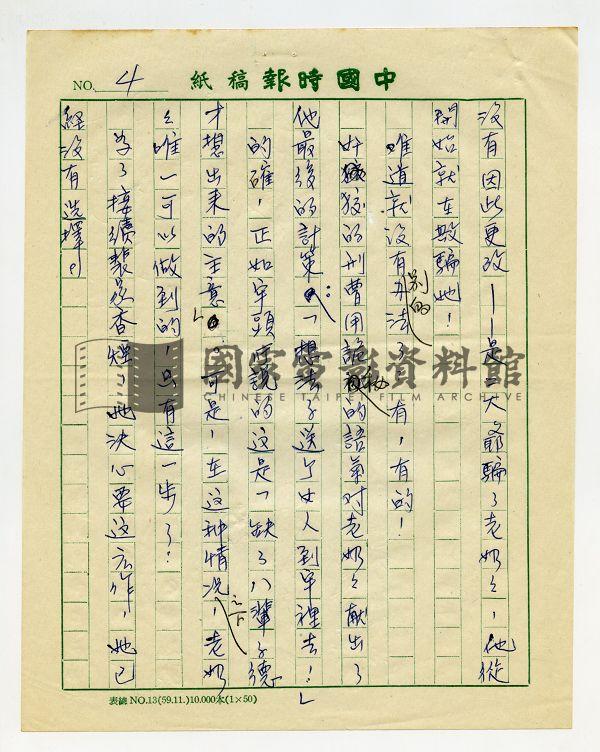 中國時報稿紙
NO. 4
沒有因此更改——是二大爺騙了老奶々，他從
開始就在欺騙她！
难道就沒有別的办法了？有，有的！
奸狡的刑曹用詭秘的語氣对老奶々献出了
他最後的計策：「想法子送个女人到牢裡去！」
的確，正如牢頭所說的这是「缺了八輩子德
才想出来的主意」可是，在这种情况之下，老奶
々唯一可以做到的，只有這一步了！
為了接續裴家香煙，她决心要这么作，她已
經沒有选擇，
國家電影資料館
CHINESE TAIPEI FILM ARCHIVE
表總NO.13(59.11.)10.000本(1×50)